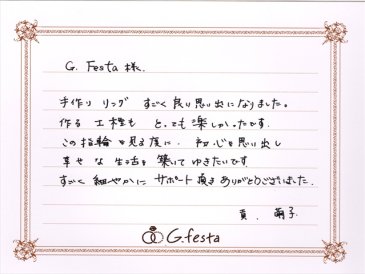 G. Festa 様.
手作り リング すごく良い思い出になりました。
作る 工程も とっても 楽しかったです.
この指輪を見る度に、初心を思い出し
幸せな生活を築いてゆきたいです
すごく細やかに サポート頂き ありがとうございました.
真. 繭子
G.festa